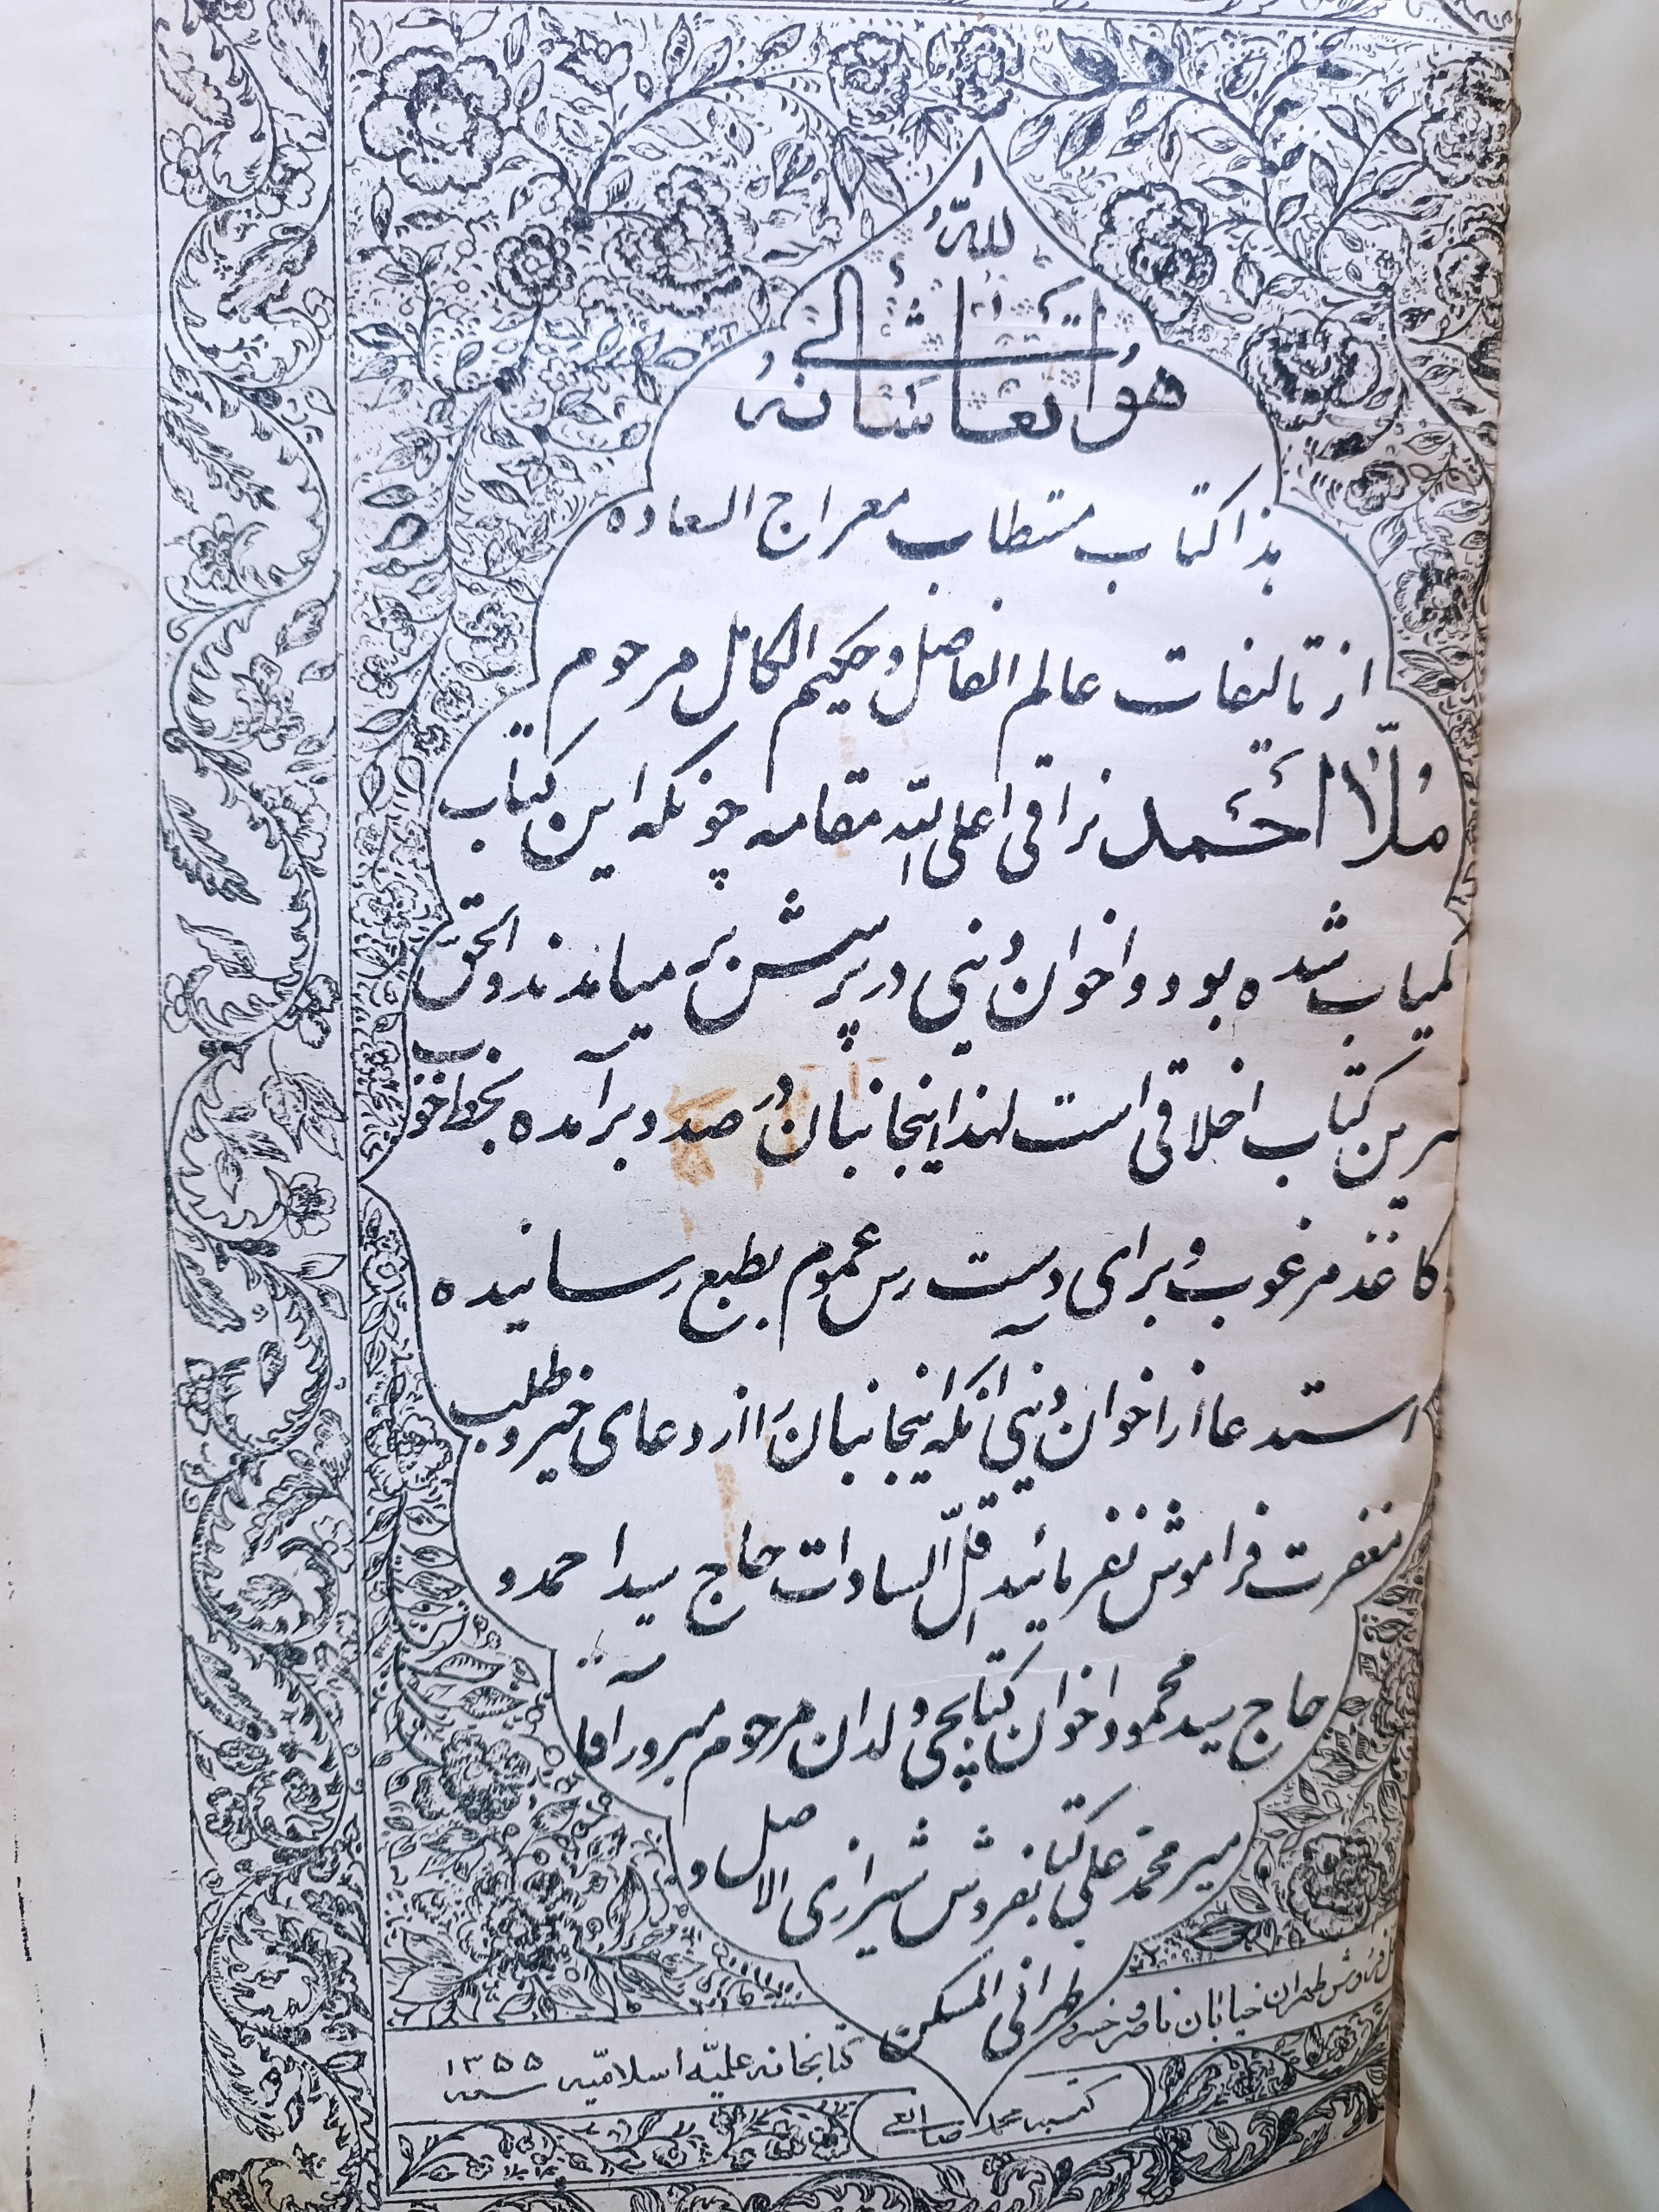 هو الله تعالی شانه
هذا کتاب مستطاب معراج السعاده
از تالیفات عالم الفاضل و حکیم الکامل مرحوم
مُلّا احمد نراقی اعلی الله مقامه چونکه این کتاب
کمیاب شده بود و اخوان دینی در پرسش بر میامدند و الحق
بهترین کتاب اخلاقی است لهذا اینجانبان در صدد برآمده بخط خوب
کاغذ مرغوب و برای دست رس عموم بطبع رسانیده
استدعا از اخوان دینی آنکه اینجانبان را از دعای خیر و طلب
مغفرت فراموش نفرمائید اقل السادات حاج سید احمد و
حاج سید محمود اخوان کتابچی ولدان مرحوم مبرور آقا
میر محمد علی کتابفروش شیرازی الاصل و
طهرانی المسکن
فروش طهران خیابان ناصر خسرو
کتابخانه علمیّه اسلامیّه سنه ۱۳۵۵
کتبه محمد صانعی